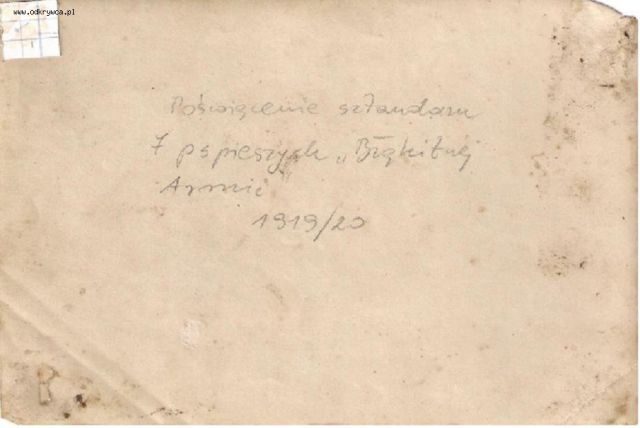 www.odkrywca.pl
Poświęcenie sztandaru
7 p s pieszych „Błękitnej
Armii"
1919/20